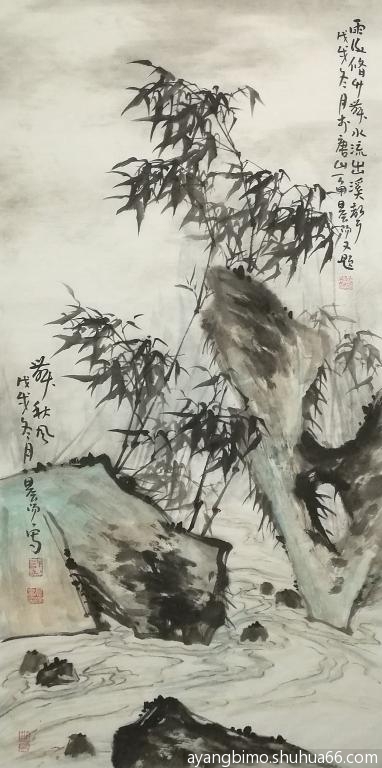 雨後脩竹舞水流出溪声
戊戌冬月於唐山一角晨阳又题
舞秋风
戊戌冬月晨阳写
ayangbimo.shuhua66.com